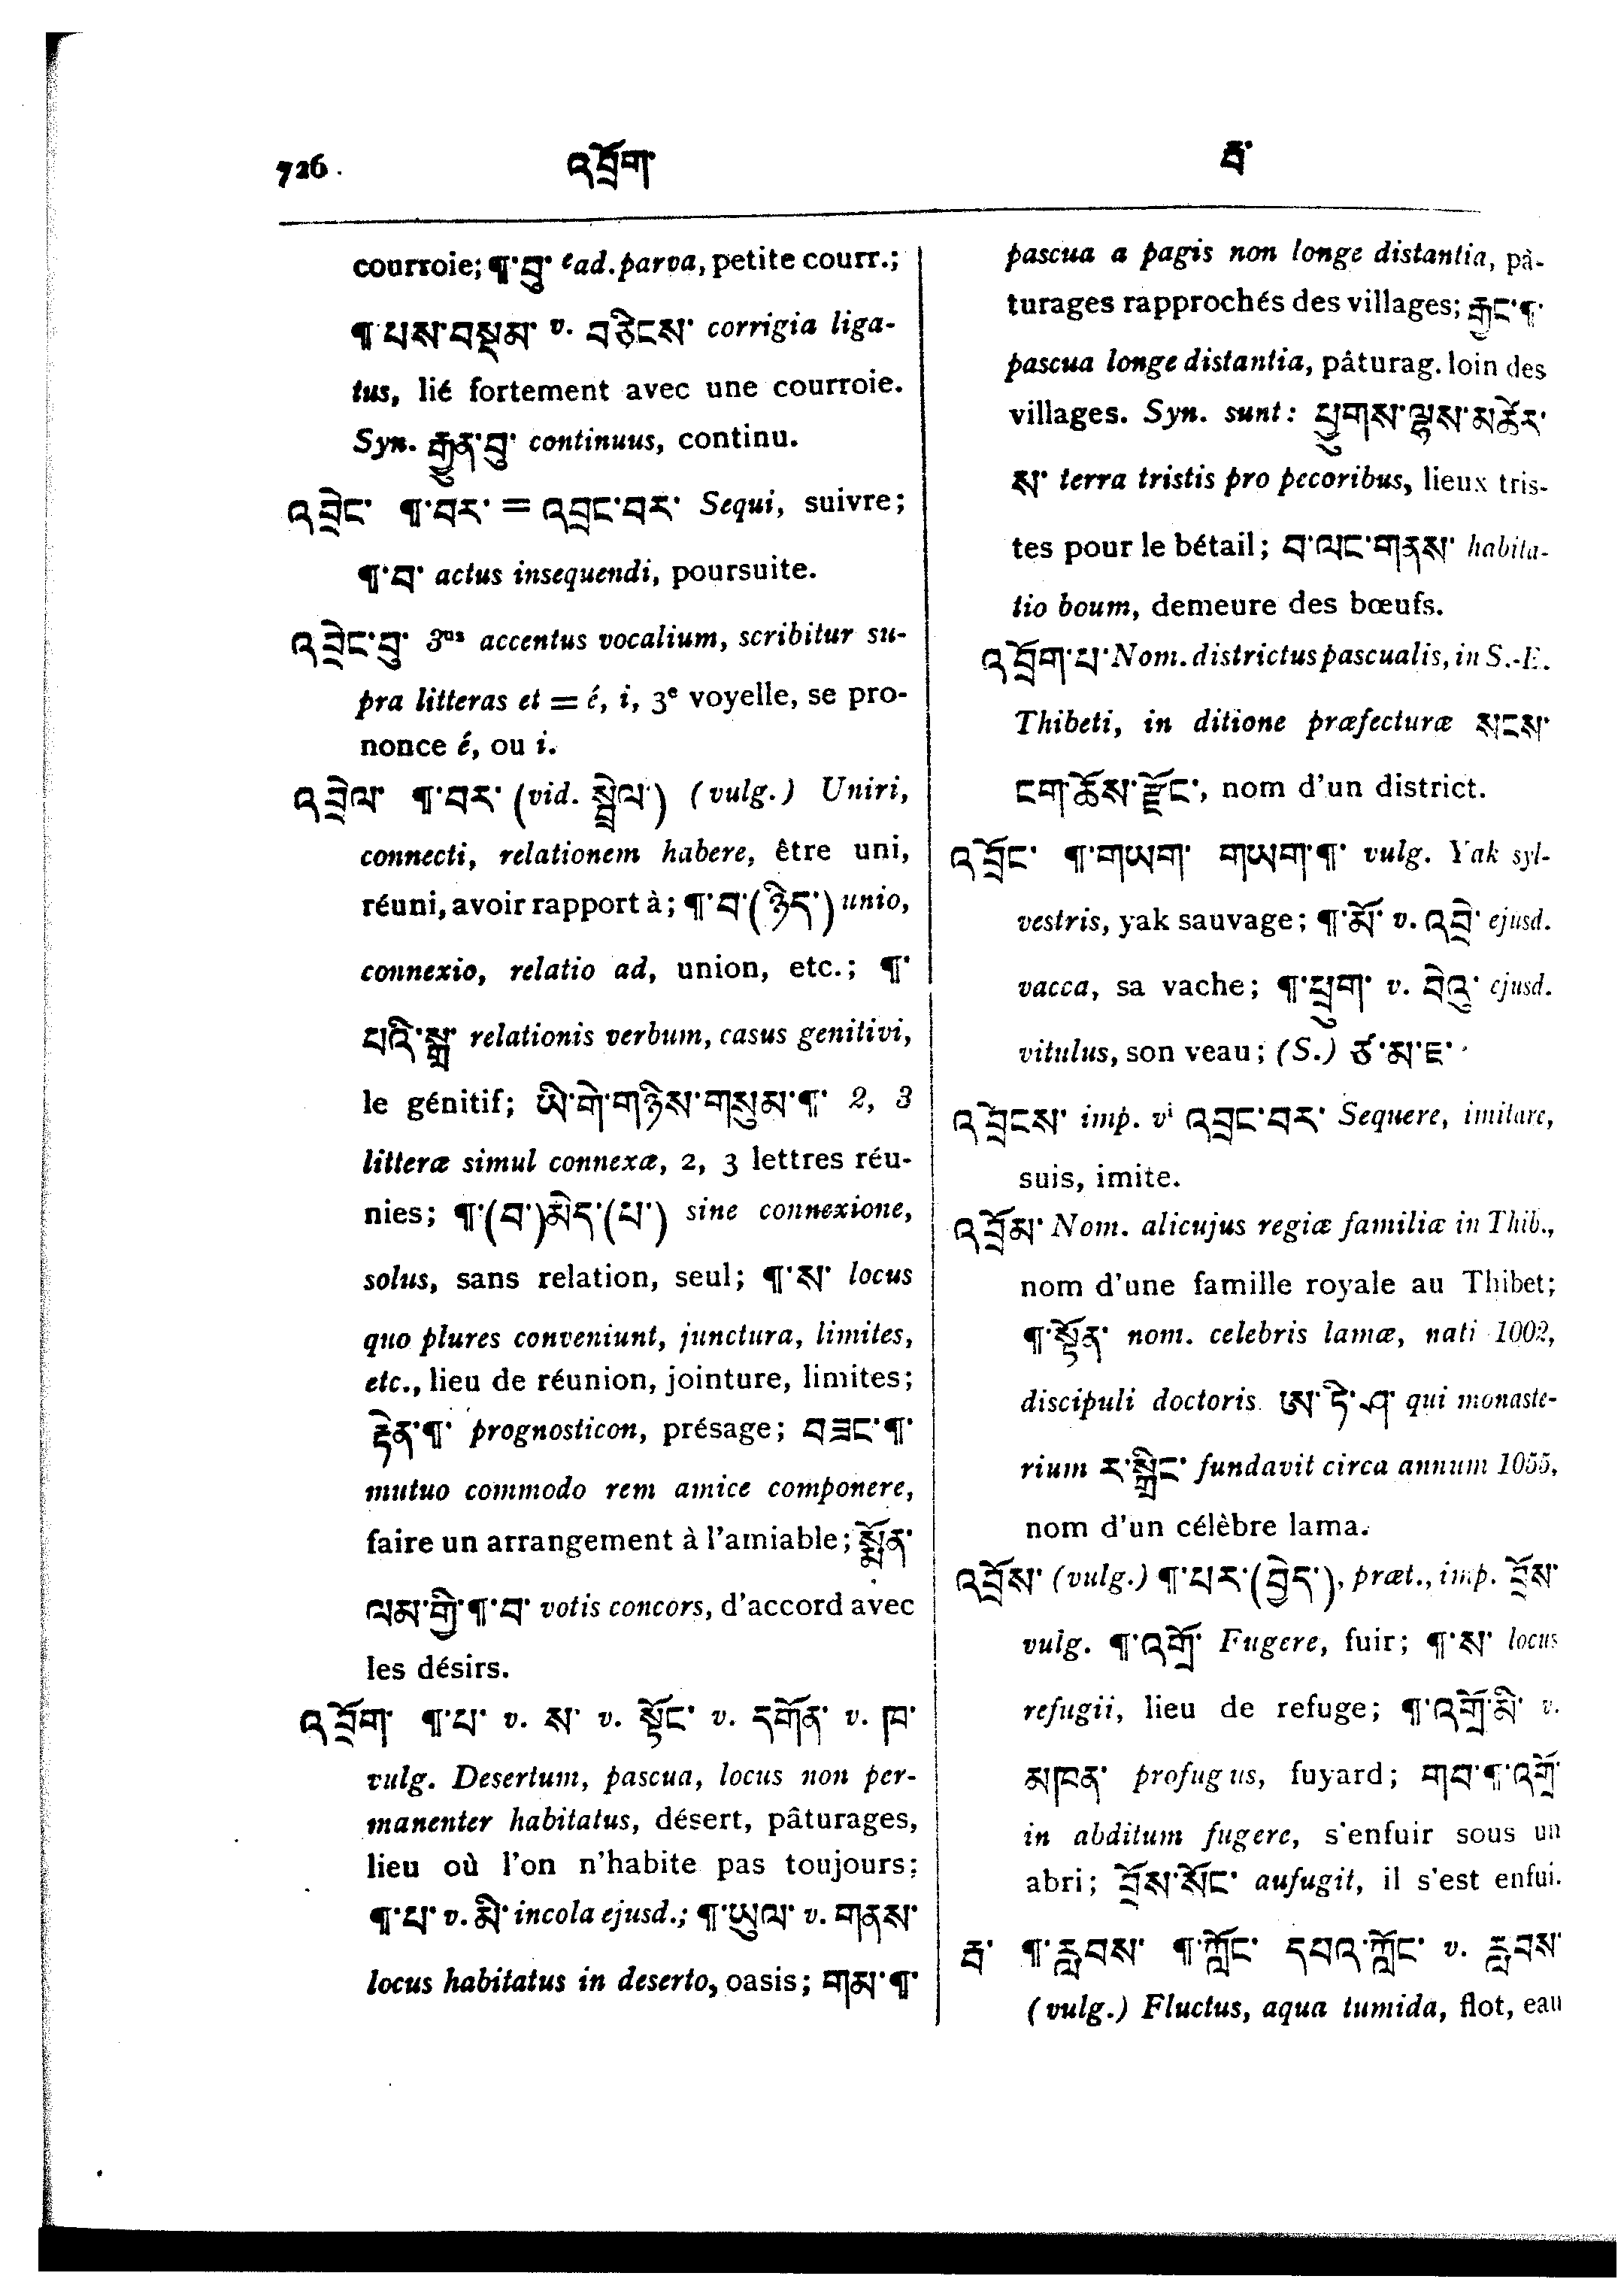 726.
འབྲོག་
རྦ་
courroie; ¶་བུ་ ead. parva, petite courr.;
¶་པས་བསྡམ་ v. བཅིངས་ corrigia liga-
tus, lié fortement avec une courroie.
Syn. རྒྱུན་བུ་ continuus, continu.
འབྲེང་ ¶་བར་ = འབྲང་བར་ Sequi, suivre;
¶་བ་ actus insequendi, poursuite.
འབྲེང་བུ་ 3us accentus vocalium, scribitur su-
pra litteras et = é, i, 3e voyelle, se pro-
nonce é, ou i.
འབྲེལ་ ¶་བར་ (vid. སྦྲེལ་) (vulg.) Uniri,
connecti, relationem habere, être uni,
réuni, avoir rapport à; ¶་བ་(ཉིད་) unio,
connexio, relatio ad, union, etc.; ¶་
པའི་སྒྲ་ relationis verbum, casus genitivi,
le génitif; ཡི་གེ་གཉིས་གསུམ་¶་ 2, 3
litteræ simul connexæ, 2, 3 lettres réu-
nies; ¶་(བ་)མེད་(པ་) sine connexione,
solus, sans relation, seul; ¶་ས་ locus
quo plures conveniunt, junctura, limites,
etc., lieu de réunion, jointure, limites;
རྟེན་¶་ prognosticon, présage; བཟང་¶་
mutuo commodo rem amice componere,
faire un arrangement à l'amiable; སྨོན་
ལམ་གྱི་¶་བ་ votis concors, d'accord avec
les désirs.
འབྲོག་ ¶་པ་ v. ས་ v. སྟོང་ v. དགོན་ v. ཁ་
vulg. Desertum, pascua, locus non per-
manenter habitatus, désert, pâturages,
lieu où l'on n'habite pas toujours;
¶་པ་ v. མི་ incola ejusd.; ¶་ཡུལ་ v. གནས་
locus habitatus in deserto, oasis; གམ་¶་
pascua a pagis non longe distantia, pâ-
turages rapprochés des villages; རྒྱང་¶་
pascua longe distantia, pâturag. loin des
villages. Syn. sunt: ཕྱུགས་ལྷས་མཚེར་
ས་ terra tristis pro pecoribus, lieux tris-
tes pour le bétail; བ་ལང་གནས་ habita-
tio boum, demeure des bœufs.
འབྲོག་པ་ Nom. districtus pascualis, in S.-E.
Thibeti, in ditione præfecturæ སངས་
ངག་ཆོས་རྫོང་, nom d'un district.
འབྲོང་ ¶་གཡག་ གཡག་¶་ vulg. Yak syl-
vestris, yak sauvage; ¶་མོ་ v. འབྲི་ ejusd.
vacca, sa vache; ¶་ཕྲུག་ v. བེའུ་ ejusd.
vitulus, son veau; (S.) ཙ་མ་ར་
འབྲོངས་ imp. vi འབྲང་བར་ Sequere, imitare,
suis, imite.
འབྲོམ་ Nom. alicujus regiæ familiæ in Thib.,
nom d'une famille royale au Thibet;
¶་སྟོན་ nom. celebris lamæ, nati 1002,
discipuli doctoris ཨ་ཏི་ཤ་ qui monaste-
rium ར་སྒྲིང་ fundavit circa annum 1055,
nom d'un célèbre lama.
འབྲོས་ (vulg.) ¶་པར་(བྱེད་), præt., imp. བྲོས་
vulg. ¶་འགྲོ་ Fugere, fuir; ¶་ས་ locus
refugii, lieu de refuge; ¶་འགྲོ་མི་ v.
མཁན་ profugus, fuyard; གབ་¶་འགྲོ་
in abditum fugere, s'enfuir sous un
abri; བྲོས་སོང་ aufugit, il s'est enfui.
རྦ་ ¶་རླབས་ ¶་ཀློང་ དབའ་ཀློང་ v. རླབས་
(vulg.) Fluctus, aqua tumida, flot, eau